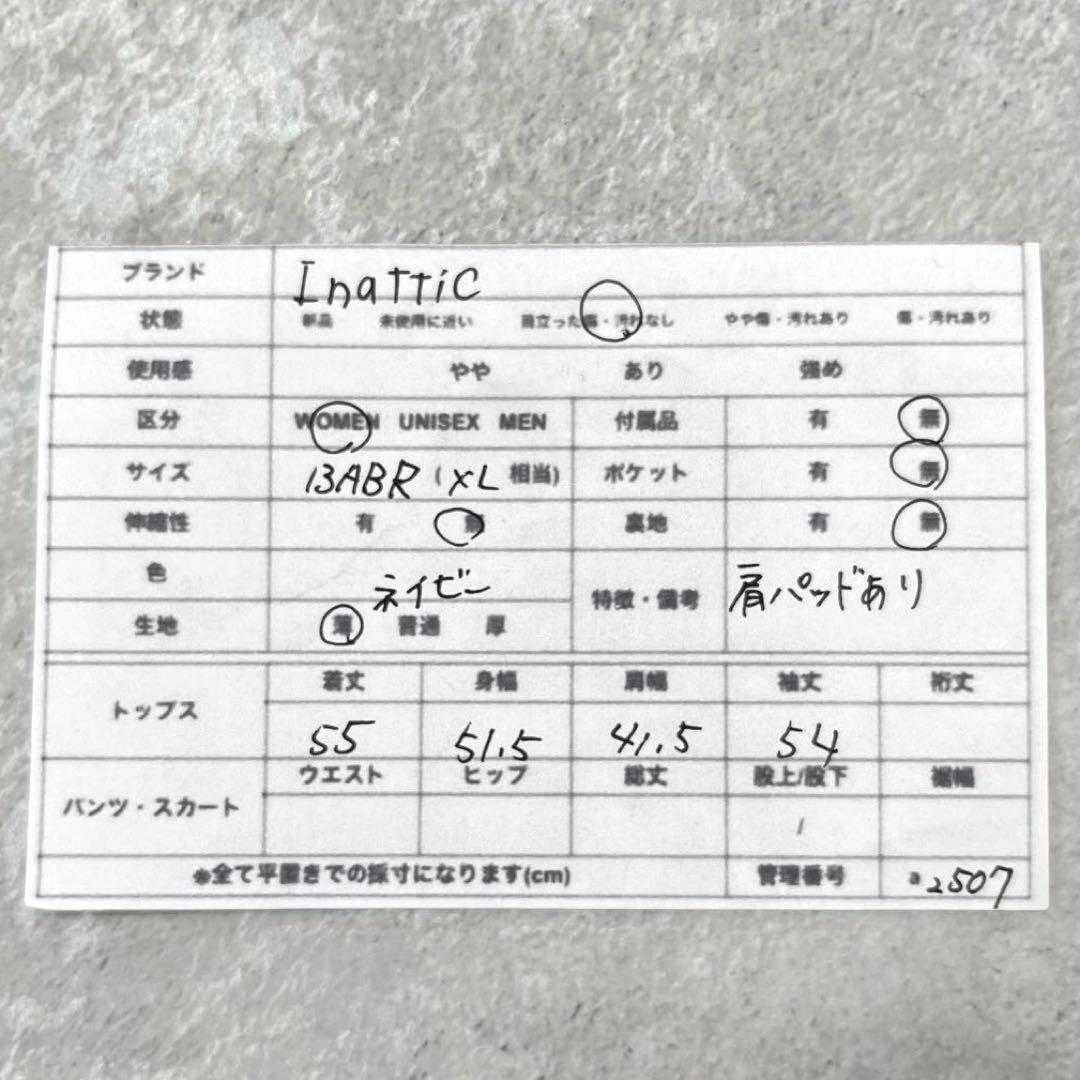 ブランド Inattic
状態 新品 未使用に近い 目立った傷・汚れなし やや傷・汚れあり 傷・汚れあり
使用感 やや あり 強め
区分 WOMEN UNISEX MEN 付属品 有 無
サイズ 13ABR (XL 相当) ポケット 有 無
伸縮性 有 無 裏地 有 無
色 ネイビー 特徴・備考 肩パッドあり
生地 薄 普通 厚
トップス 着丈 身幅 肩幅 袖丈 裄丈
55 51.5 41.5 54
パンツ・スカート ウエスト ヒップ 総丈 股上/股下 裾幅
/
※全て平置きでの採寸になります(cm) 管理番号 a 2507